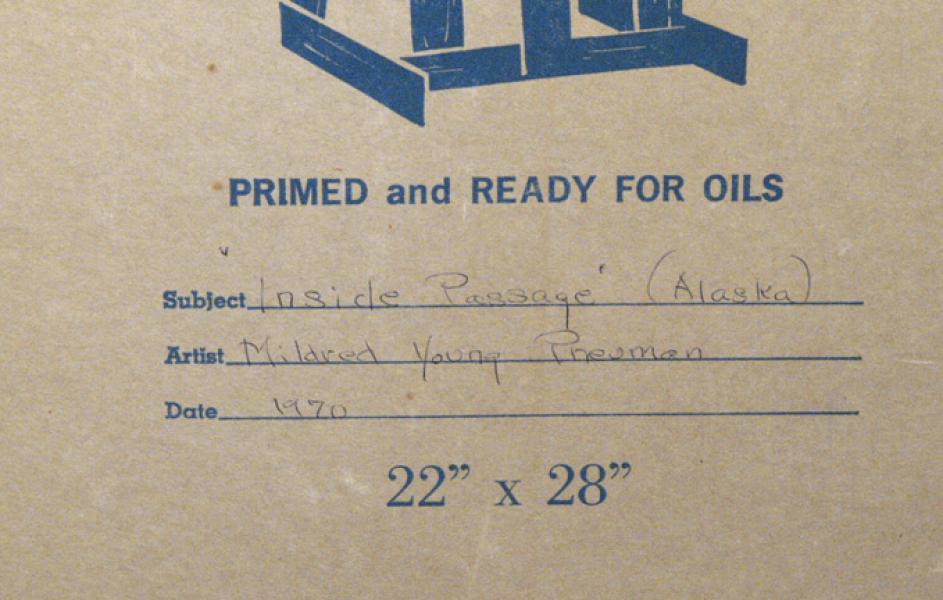 PRIMED and READY FOR OILS
Subject "Inside Passage" (Alaska)
Artist Mildred Young Pneuman
Date 1970
22” x 28”